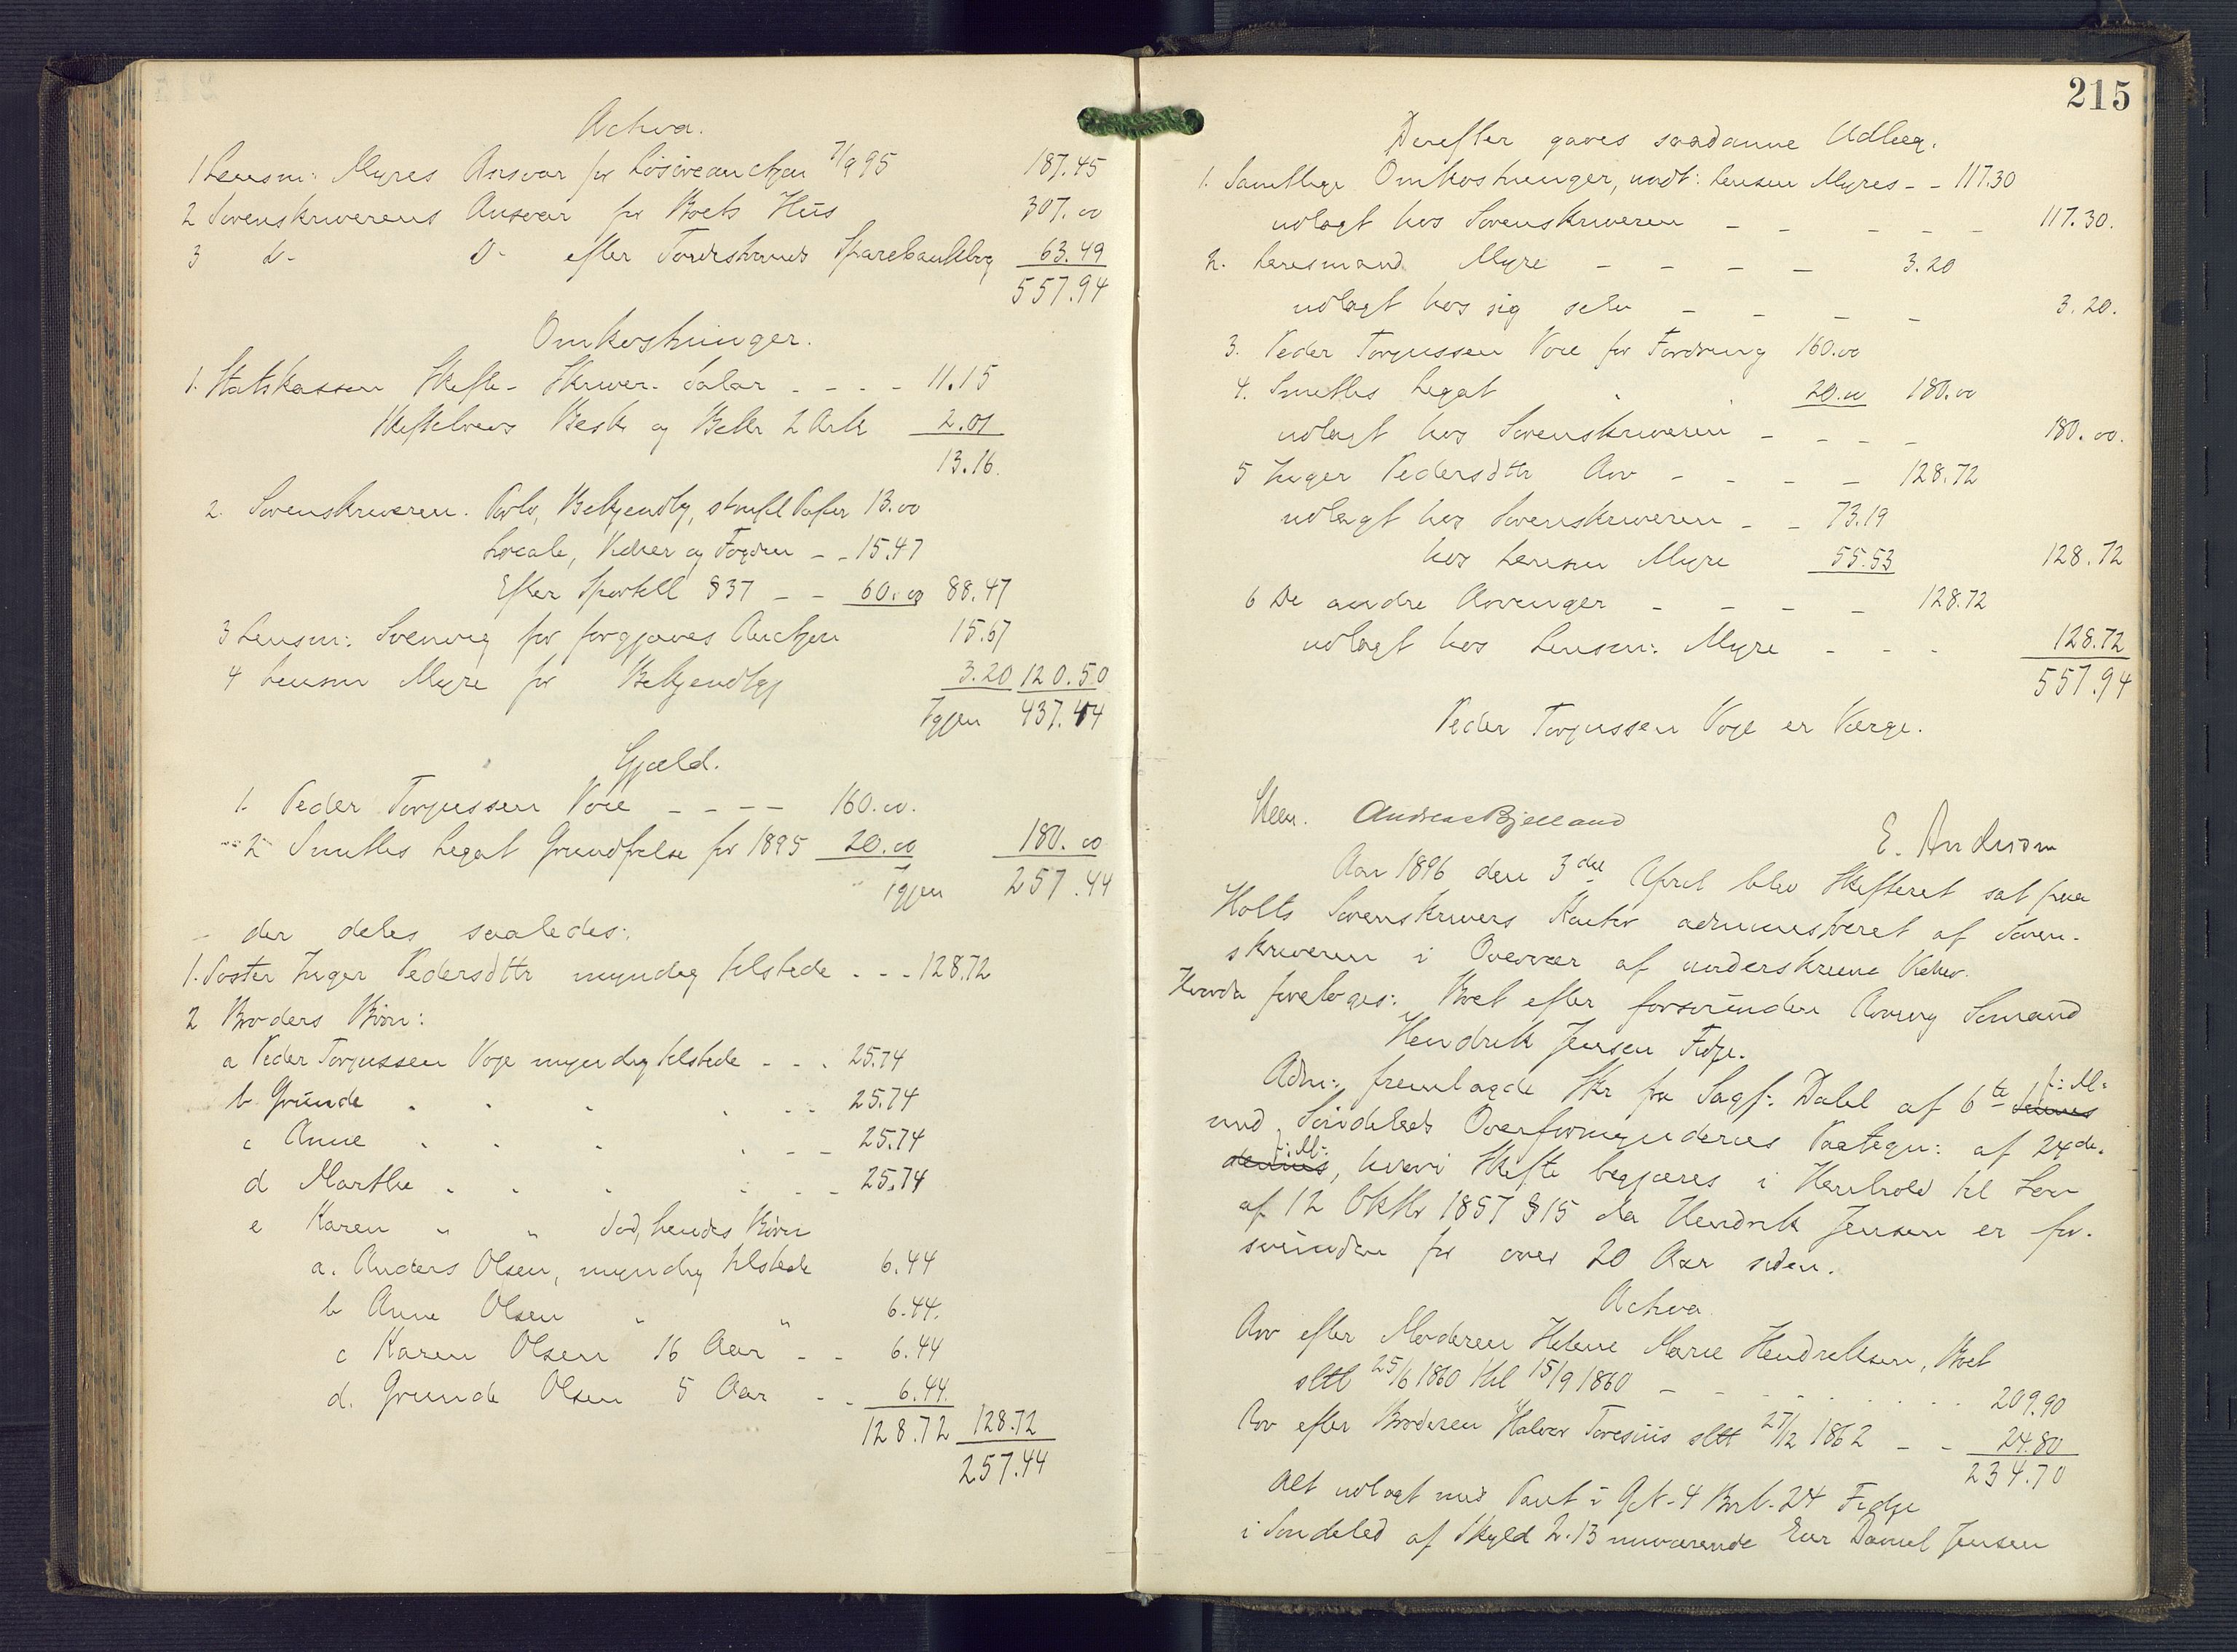 Activa.
1 Lensm: Myres Ansvar for Løsøreauctjon 7/9 95 187.45
2 Sorenskriverens Ansvar for Boets Hus 307.00
3 do- Do- efter Tvedestrands Sparebankbog 63.49
557.94
Omkostninger.
1. Statskassen Skifte- Skriver- Salar - - - - 11.15
Skiftebrevs Besk og Bekr 2 Ark 2.01
13.16.
2. Sorenskriveren. Porto, Bekjendtg, stempl Papir 13.00
Locale, Vidner og - - 15.47
Efter Sportell § 37 - - 60.00 88.47
3 Lensm: Svenvig for forgjæves Auctjon 15.67
4 Lensm Myre for Bekjendtgj 3.20 120.50
Igjen 437.44
Gjæld.
1. Peder Torjussen Voie - - - - 160.00.
2 Smiths Legat Grundfrelse for 1895 20.00 180.00
Igjen 257.44
der deles saaledes:
1. Søster Inger Pedersdttr myndig tilstede . - - 128.72
2 Broders Børn:
a Peder Torjussen Voje myndig tilstede - - . 25.74
b Grunde . " " . - - 25.74
c Anne . . . . - - 25.74
d Marthe . . . . - - 25.74
e Karen " " død, hendes Børn
a. Anders Olsen, myndig tilstede 6.44
b Anne Olsen " " 6.44.
c Karen Olsen 16 Aar - - 6.44
d. Grunde Olsen 5 Aar - . 6.44.
128.72 128.72
257.44
215
Derefter gaves saadanne Udlæg.
1. Samtlige Omkostninger, undt: Lensm Myres - - 117.30
udlagt hos Sorenskriveren - - - - - 117.30.
2. Lensmand Myre - - - - 3.20
udlagt hos sig selv - - - - 3.20.
3. Peder Torjussen Voie for Fordring 160.00
4. Smiths Legat . . 20.00 180.00
udlagt hos Sorenskriveren - - - - 180.00.
5 Inger Pedersdttr Arv - - - - 128.72
udlagt hos Sorenskriveren - - 73.19
hos Lensm Myre 55.53 128.72
6 De andre Arvinger - - - - 128.72
udlagt hos Lensm: Myre - - - 128.72
557.94
Peder Torjussen Voje er Værge.
Steen. Andreas Bjelland
E. Anderson
Aar 1896 den 3die April blev Skifteret sat paa
Holts Sorenskrivers Kontor administreret af Soren-
skriveren i Overvær af underskrevne Vidner.
Hvorda foretoges: Boet efter forsvunden Arving Sømand
Hendrik Jensen Fidje.
Adm: fremlagde Skr fra Sagf: Dahl af 6te f: M:
med Søndeleds Overformynderies Paategn: af 24de
f: M:, hvori Skifte begjæres i Henhold til Lov
af 12 Oktbr 1857 § 15 da Hendrik Jensen er for-
svunden for over 20 Aar siden.
Activa
Arv efter Moderen Helene Marie Hendriksen, Boet
sltt 25/6 1860 til 15/9 1860 - - - - - - - 209.90
Arv efter Broderen Halvor Toresius sltt 27/12 1862 - - 24.80
234.70
Alt udlagt med Pant i G.N. 4 Br.N. 24 Fidje
i Søndeled af Skyld 2.13 nuværende Eier Daniel Jensen